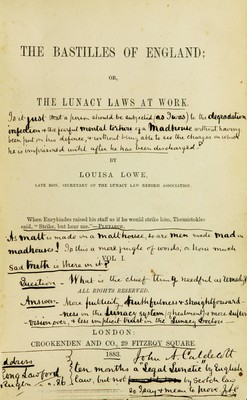 THE BASTILLES OF ENGLAND;
OR,
THE LUNACY LAWS AT WORK.
Is it just that a person should be subjected (as I was) to the degradation
infection & the perfect mental torture of a Madhouse without having
been put on his defence, & without being able to see the charges on which
he is imprisoned until after he has been discharged?
BY
LOUISA LOWE,
LATE HON. SECRETARY OF THE LUNACY LAW REFORM ASSOCIATION.
When Eurybiades raised his staff as if he would strike him, Themistokles
said, "Strike, but hear me."—PLUTARCH.
As malt is made in a malthouse, so are men made mad in
madhouses! Is this a mere jingle of words, or how much
sad truth is there in it?
VOL. I.
Question - What is the chief thing needful as remedy?
ALL RIGHTS RESERVED.
Answer - More publicity, truthfulness & straightforward-
ness in the Lunacy system & treatment, & more super-
vision over, & less implicit trust in the Lunacy Doctors
LONDON:
CROOKENDEN AND CO., 29 FITZROY SQUARE.
1883.
John A. Caldecott
Address
Long Lawford
Rugby
ten months a Legal Lunatic by English
law, but not by Scotch law
so I say & mean to prove